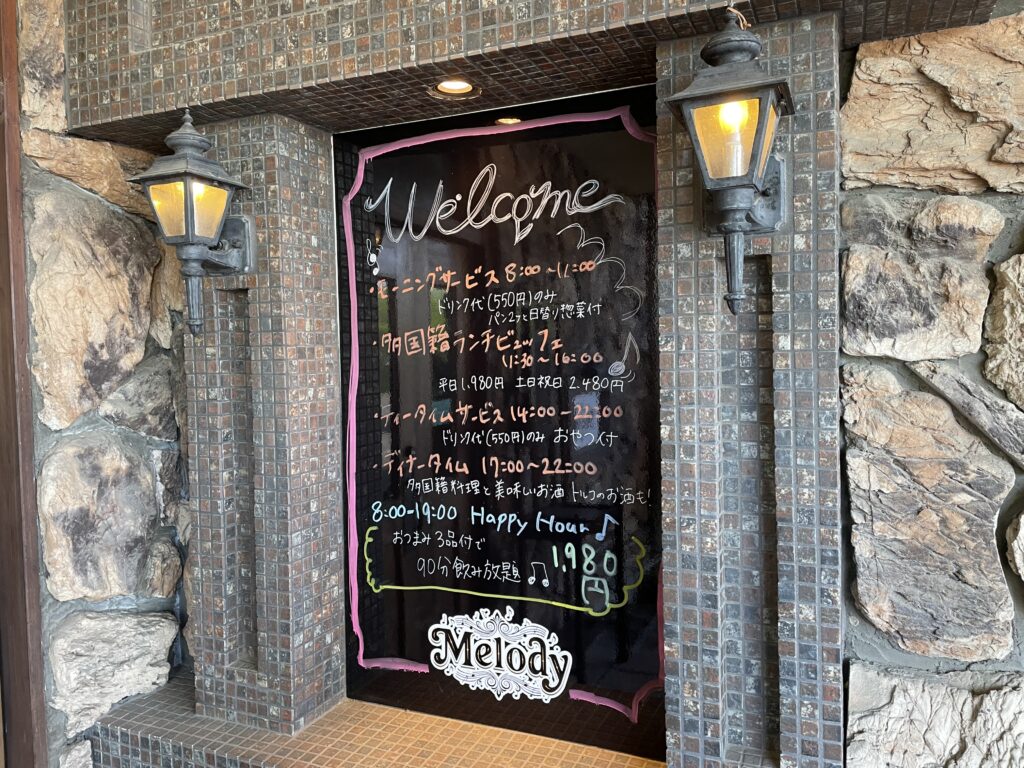 Welcome
・モーニングサービス 8:00〜11:00
ドリンク代(550円)のみ
パン2ケと日替り惣菜付
・多国籍ランチビュッフェ
11:30〜16:00
平日1.980円 土日祝日 2.480円
・ティータイムサービス 14:00〜22:00
ドリンク代(550円)のみ おやつ付
・ディナータイム 17:00〜22:00
多国籍料理と美味しいお酒 トルコのお酒も!
8:00-19:00 Happy Hour ♪
おつまみ3品付で
90分飲み放題 ♫ 1,980円
Melody